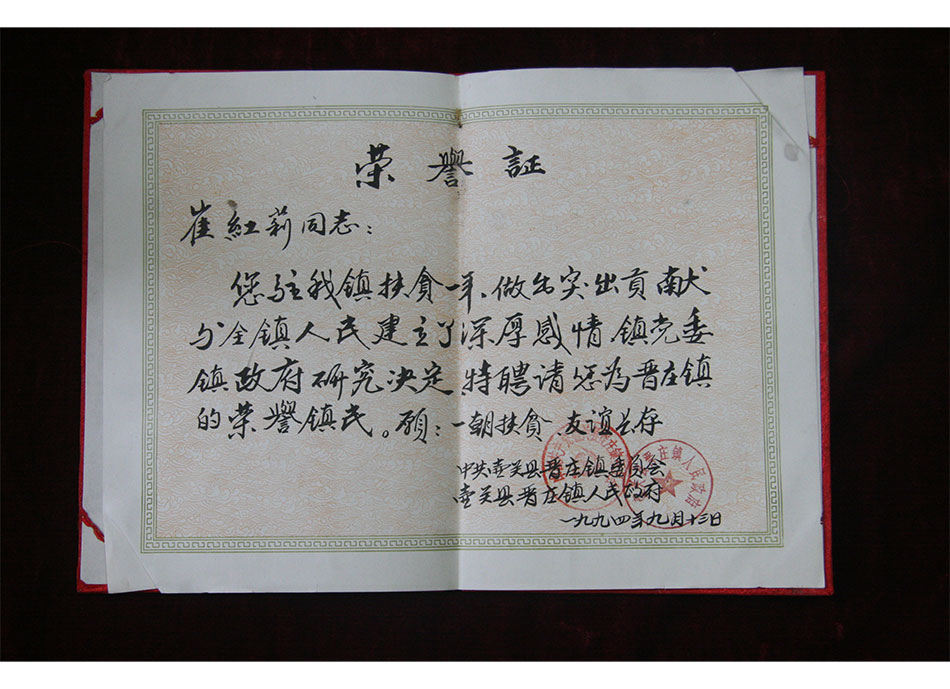 荣誉証
崔红莉同志：
您驻我镇扶贫一年、做出突出贡献
与全镇人民建立了深厚感情镇党委
镇政府研究决定特聘请您为晋庄镇
的荣誉镇民。愿：一朝扶贫 友谊长存
中共壶关县晋庄镇委员会
壶关县晋庄镇人民政府
一九九四年九月十三日
庄镇人民政府